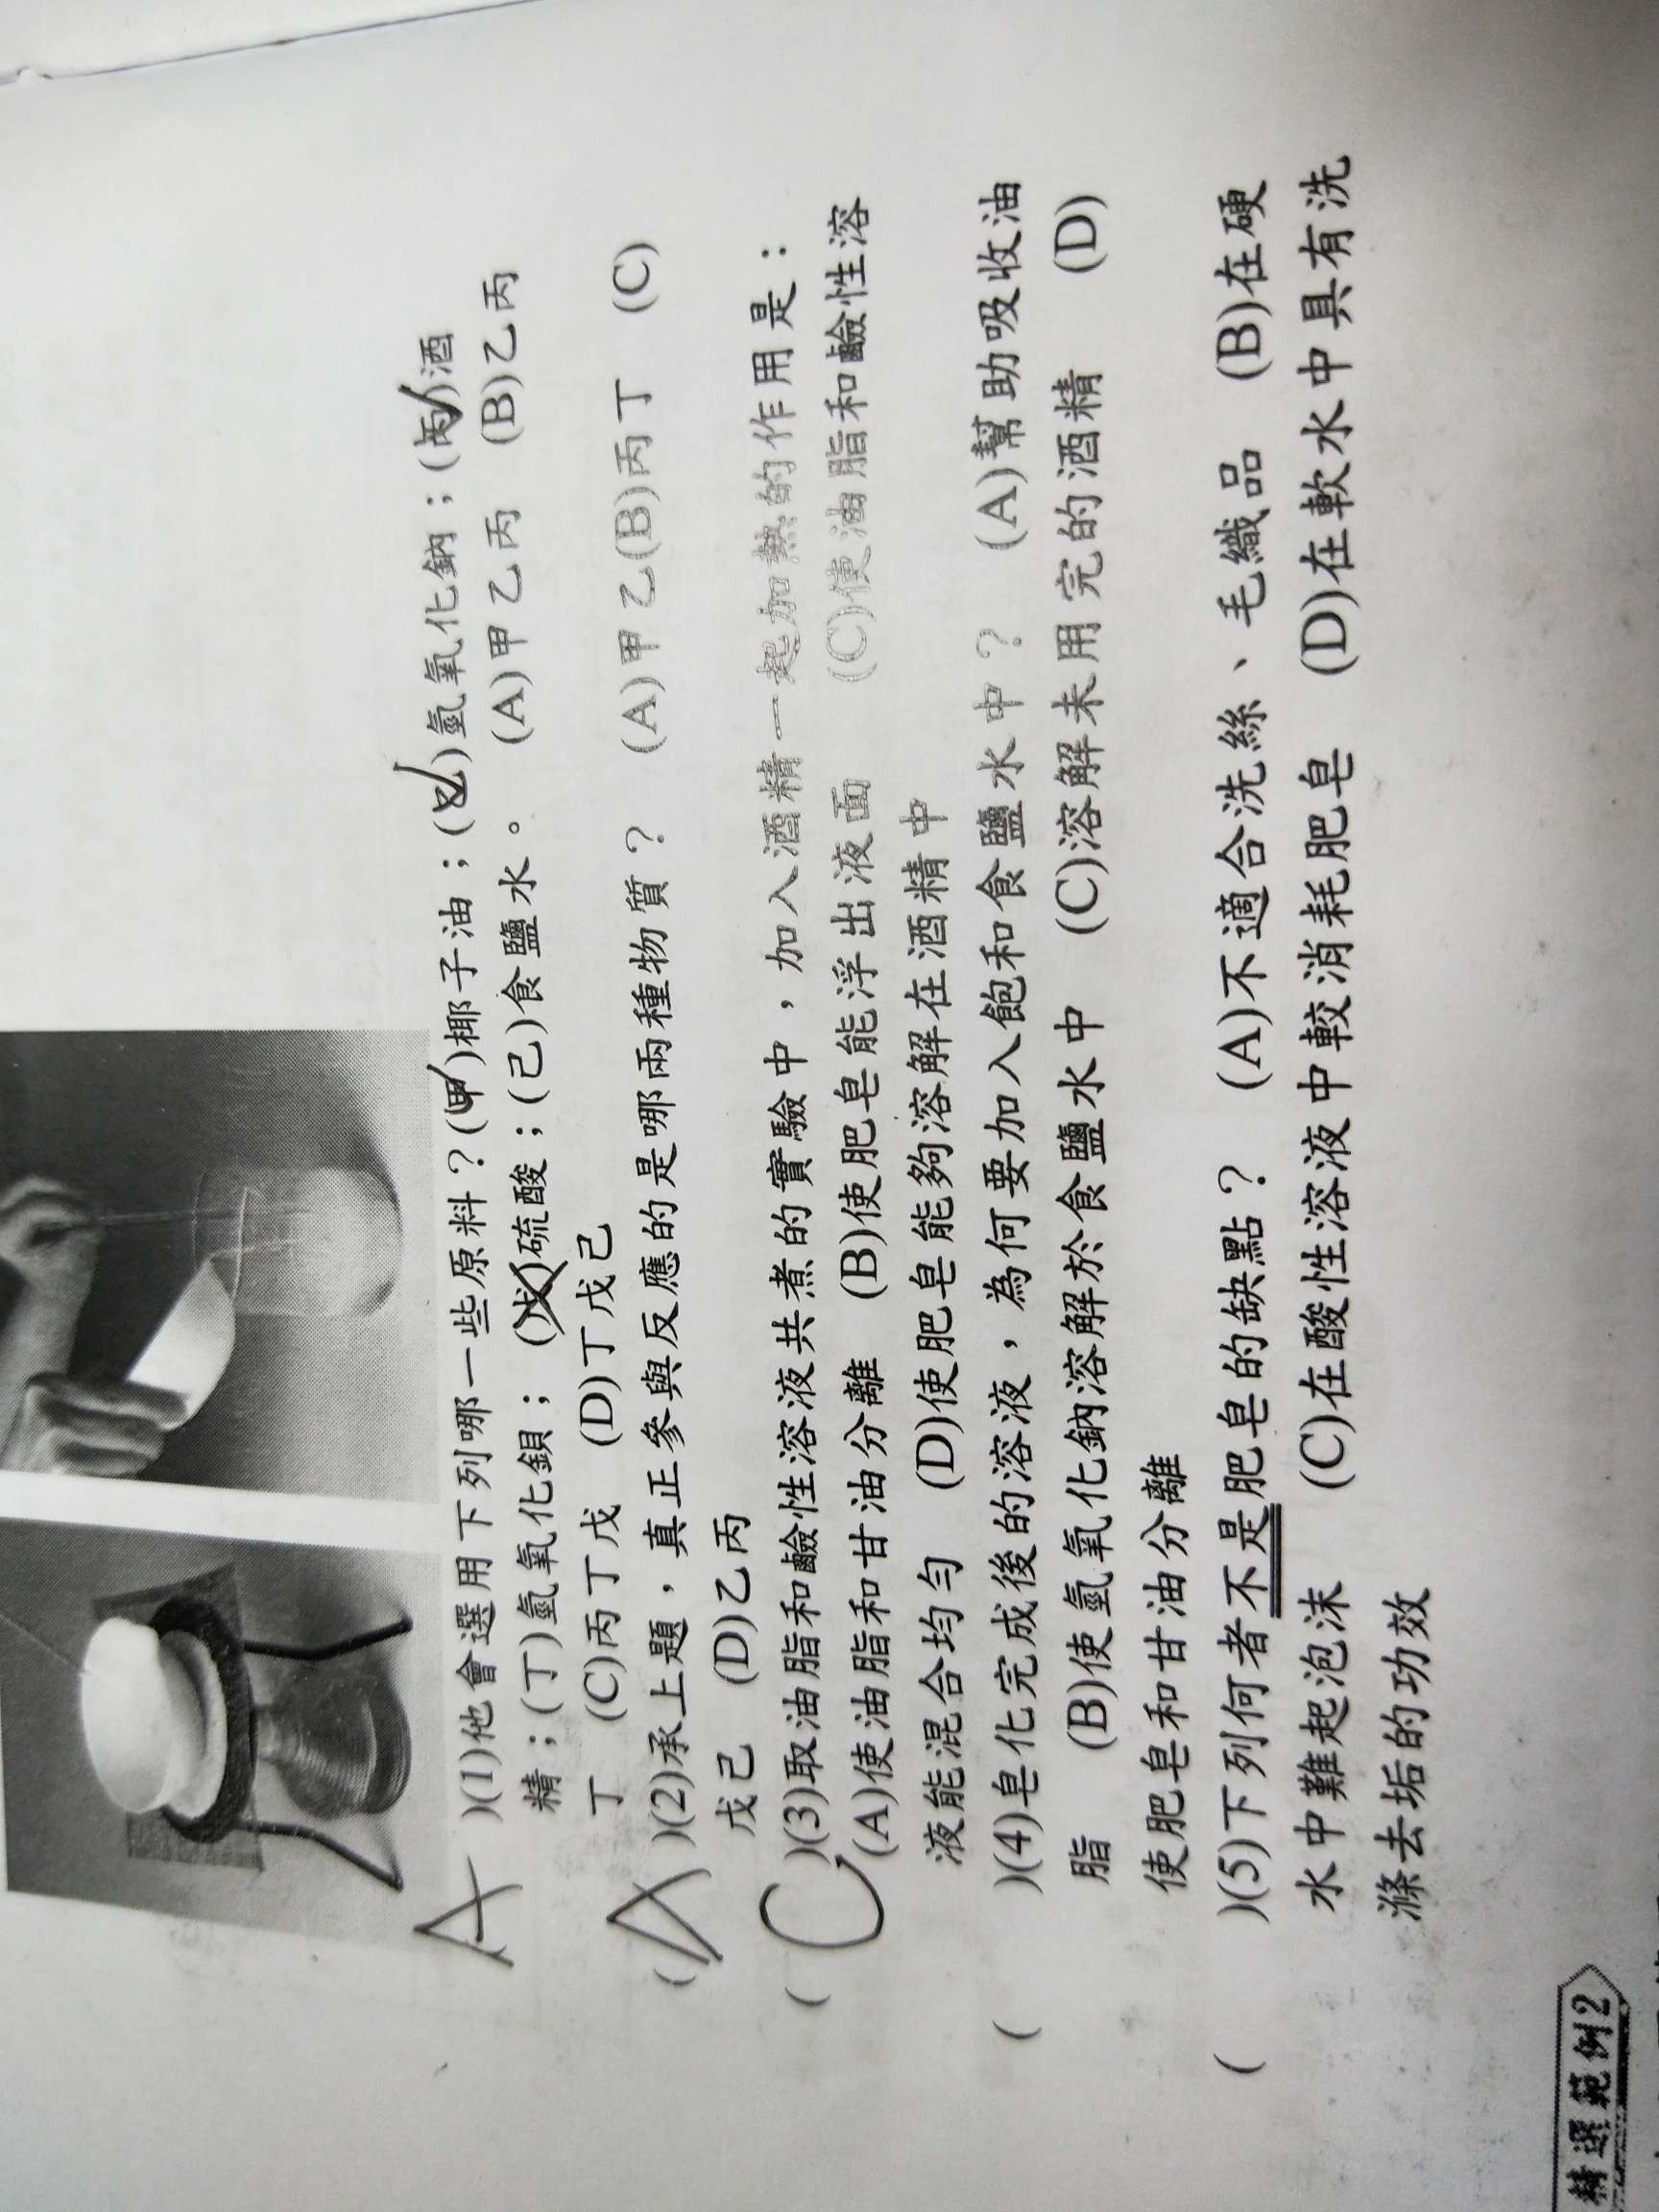 A )(1)他會選用下列哪一些原料？(甲)椰子油；(乙)氫氧化鈉；(丙)酒
精；(丁)氫氧化鋇；(戊)硫酸；(己)食鹽水。 (A)甲乙丙 (B)乙丙
丁 (C)丙丁戊 (D)丁戊己
(A)(2)承上題，真正參與反應的是哪兩種物質？ (A)甲乙(B)丙丁 (C)
戊己 (D)乙丙
(C)(3)取油脂和鹼性溶液共煮的實驗中，加入酒精一起加熱的作用是：
(A)使油脂和甘油分離 (B)使肥皂能浮出液面 (C)使油脂和鹼性溶
液能混合均勻 (D)使肥皂能夠溶解在酒精中
( )(4)皂化完成後的溶液，為何要加入飽和食鹽水中？ (A)幫助吸收油
脂 (B)使氫氧化鈉溶解於食鹽水中 (C)溶解未用完的酒精 (D)
使肥皂和甘油分離
( )(5)下列何者不是肥皂的缺點？ (A)不適合洗絲、毛織品 (B)在硬
水中難起泡沫 (C)在酸性溶液中較消耗肥皂 (D)在軟水中具有洗
滌去垢的功效
精選範例2